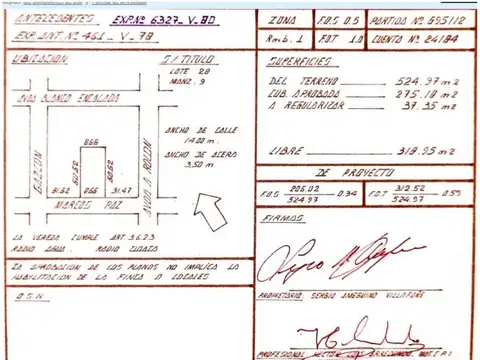 ANTECEDENTES EXP.Nº 6327_V_80
EXP. ANT. Nº 461_V_79
UBICACION
S/ TITULO
LOTE 28
MANZ. 9
AVDA BLANCO ENCALADA
GAZCON
8.66
60.62
60.62
31.52 8.66 31.47
MARCOS PAZ
AVDA A. ROLON
ANCHO DE CALLE
14.00 m.
ANCHO DE ACERA
3.50 m
LA VEREDA CUMPLE ART. 3.6.2.3
RADIO AGUA RADIO CLOACA
LA APROBACION DE LOS PLANOS NO IMPLICA LA
HABILITACION DE LA FINCA O LOCALES
O.S.N.
ZONA F.O.S 0.5 PARTIDA Nº 695112
Rmb. 1 FOT 1.0 CUENTA Nº 24184
SUPERFICIES
DEL TERRENO 524.97 m2
CUB. APROBADA 275.18 m2
A REGULARIZAR 37.35 m2
LIBRE 318.95 m2
DE PROYECTO
F.O.S 206.02 0.34 F.O.T 312.52 0.59
524.97 524.97
FIRMAS
PROPIETARIO: SERGIO VILLAFAÑE
PROFESIONAL HECTOR